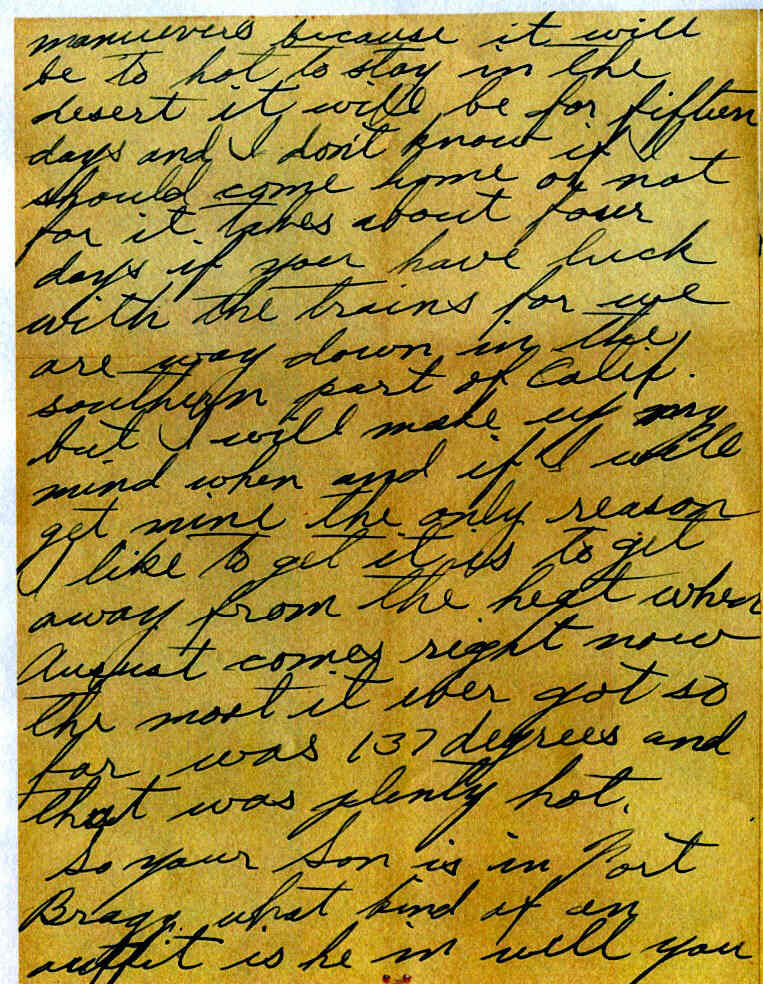 manuevers because it will
be to hot to stay in the
desert it will be for fifteen
days and I don't know if I
should come home or not
for it takes about four
days if you have luck
with the trains for we
are way down in the
southern part of Calif.
but I will make up my
mind when and if I will
get mine the only reason
I like to get it is to get
away from the heat when
August comes right now
the most it ever got so
far was 137 degrees and
that was plenty hot.
So your Son is in Fort
Bragg. what kind of an
outfit is he in well you